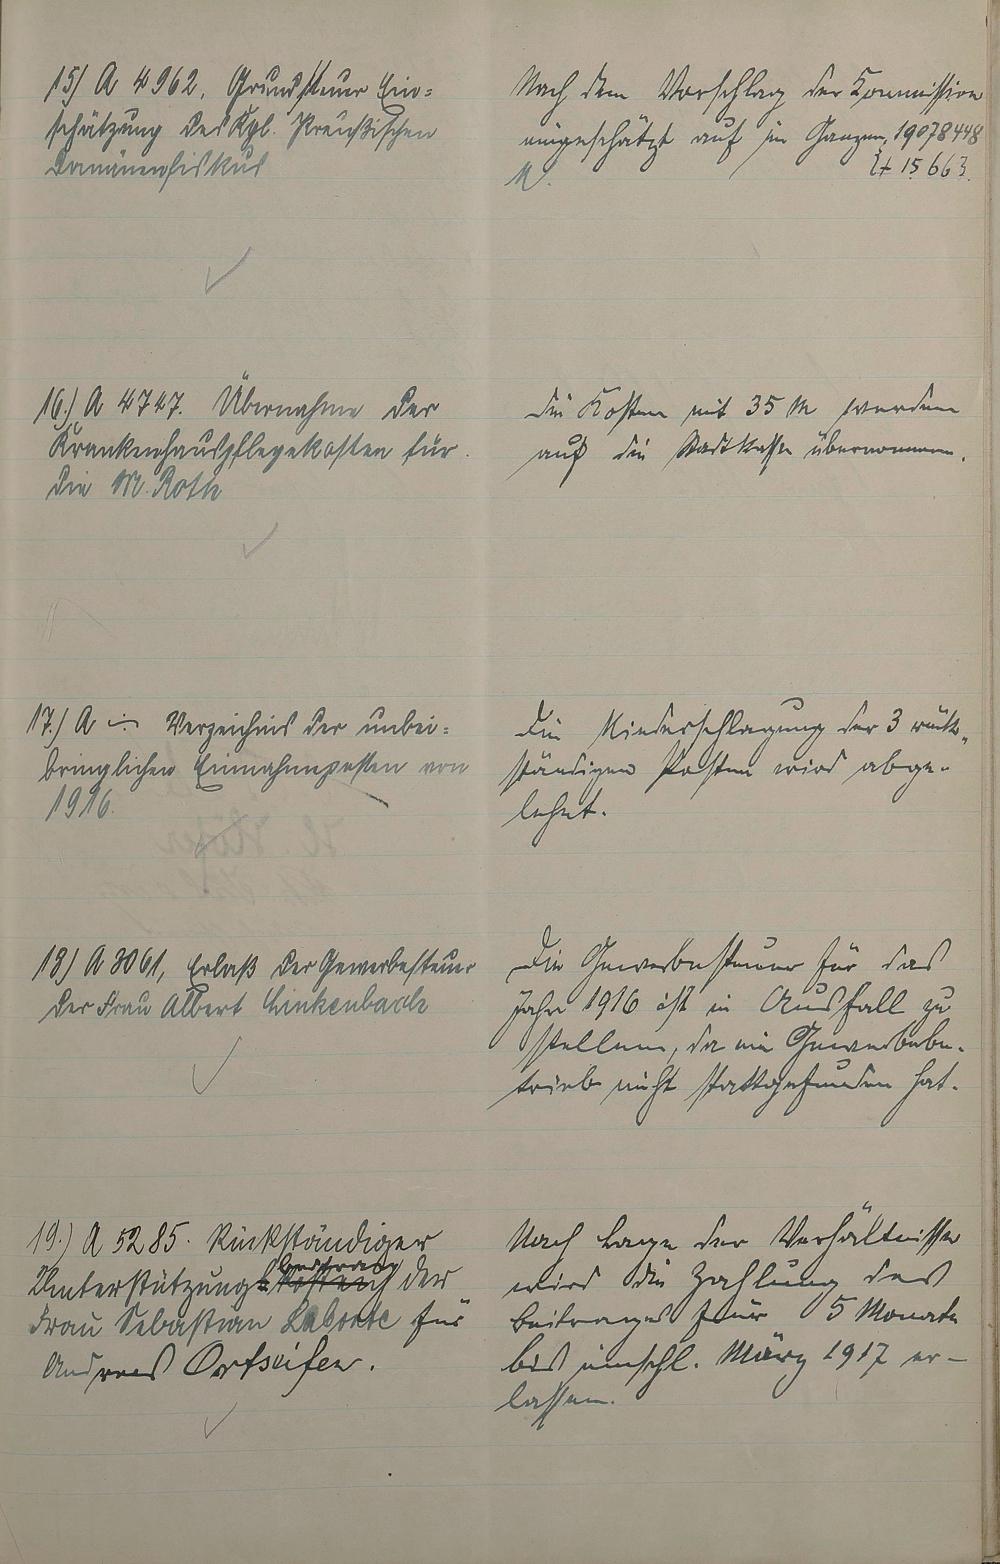 15) A 4962. Grundsteuer Ein=
schätzung des Kgl. Preußischen
Domänenfiskus
Nach dem Vorschlag der Kommission
eingeschätzt auf im Ganzen 19078448
M.
15663.
16.) A 4747. Übernahme der
Krankenhauspflegekosten für
die M. Roth
Die Kosten mit 35 M werden
auf die Stadtkasse übernommen.
17.) A -:- Verzeichnis der unbei=
bringlichen Einnahmeposten von
1916.
Die Niederschlagung der 3 rück=
ständigen Posten wird abge-
lehnt.
18) A 3061, Erlaß der Gewerbesteuer
der Frau Albert Linkenbach
Die Gewerbesteuer für das
Jahr 1916 ist in Ausfall zu
stellen, da ein Gewerbebe-
trieb nicht stattgefunden hat.
19.) A 5285. Rückständiger
Unterstützungsbeitrag der
Frau Sebastian Labonte für
Andreas Ortseifen.
Nach Lage der Verhältnisse
wird die Zahlung des
Beitrages für 5 Monate
bis einschl. März 1917 er-
lassen.